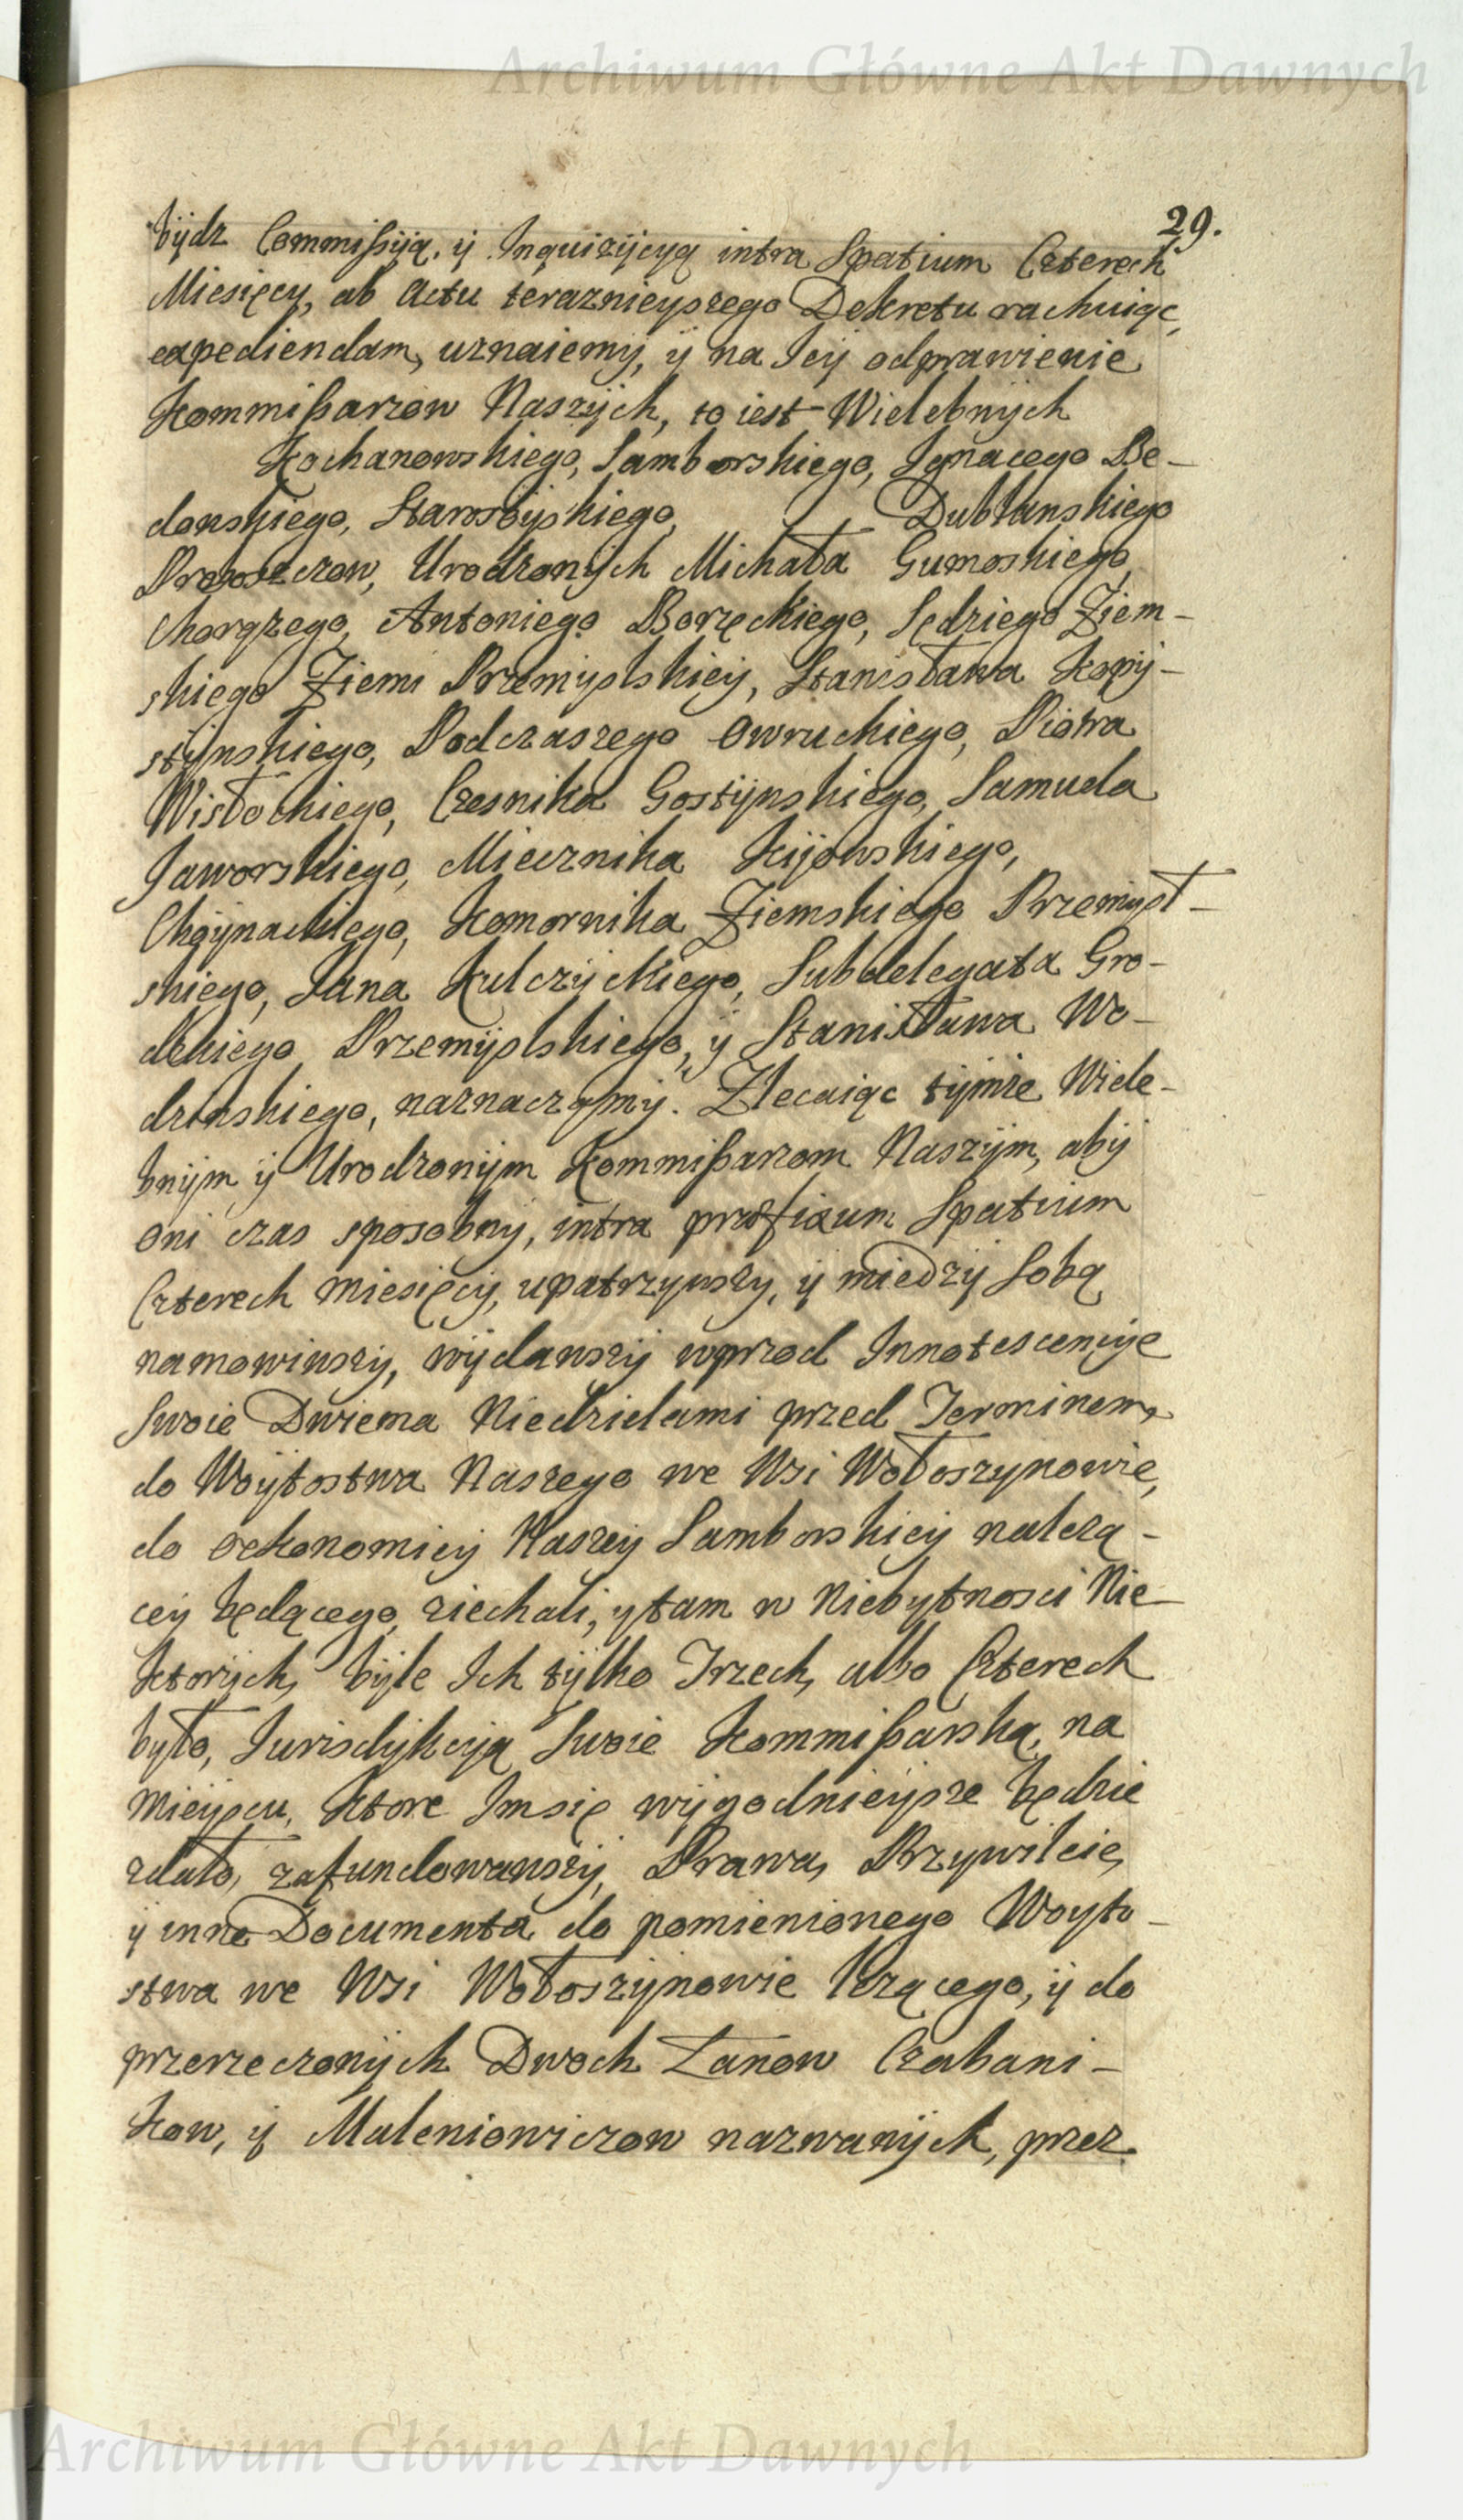 Archiwum Główne Akt Dawnych
29.
bydz Commißyą, y Inquizycyą intra Spatium Czterech
Miesięcy, ab Actu teraznieyszego Dekretu rachuiąc,
expediendam, uznaiemy, y na Jey odprawienie
Kommißarzow Naszych, to iest Wielebnych
Kochanowskiego, Samborskiego, Ignacego Be-
donskiego, Starosolskiego, Dublanskiego
Proboszczow, Urodzonych Michała Gumoskiego
Chorązego, Antoniego Borzęckiego, Sędziego Ziem-
skiego Ziemi Przemyslskiey, Stanisława Kopy-
stynskiego, Podczaszego Owruckiego, Piotra
Wisłockiego, Czesnika Gostynskiego, Samuela
Jaworskiego, Miecznika Kijowskiego,
Choynackiego, Komornika Ziemskiego Przemysl-
skiego, Jana Kulczyckiego, Subdelegata Gro-
dzkiego Przemyslskiego, y Stanisława Wo-
dzinskiego, naznaczamy. Zlecaiąc tymże Wiele-
bnym y Urodzonym Kommißarzom Naszym, aby
oni czas sposobny, intra præfixum Spatium
Czterech Miesięcy, upatrzywszy, y miedzy Sobą
namowiwszy, wydawszy wprzod Innotescencye
Swoie Dwiema Niedzielami przed Terminem,
do Woytostwa Naszego we Wsi Wołoszynowie,
do oekonomiey Naszey Samborskiey nalezą-
cey będącego, ziechali, y tam w Niebytnosci Nie-
ktorych, byle Ich tylko Trzech, albo Czterech
było, Jurisdykcyą Swoie Kommißarską, na
Mieyscu, ktore Imsię wygodnieysze będzie
zdało, zafundowawszy, Prawa, Przywileie,
y inne Documenta do pomienionego Woyto-
stwa we Wsi Wołoszynowie lezącego, y do
przerzeczonych Dwoch Łanow Czabani-
kow, y Maleniowiczow nazwanych, przez
Archiwum Główne Akt Dawnych